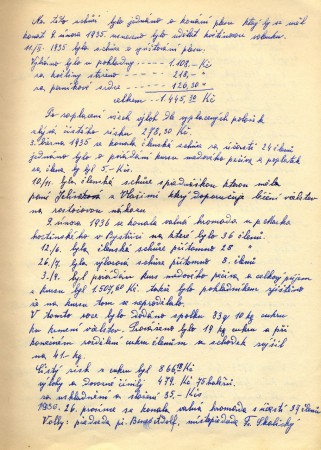 Na této schůzi bylo jednáno o konání plesu který by se měl
konat 9. února 1935. usneseno bylo udělat květinovou
11/II. 1935 bylo schůze o zúčtování plesu.
Vybráno bylo v pokladny ----- 1.108.- Kč
za květiny strženo ----- 218,- "
za perníkové srdce ----- 126,30 "
celkem 1.445,30 Kč
Po zaplacení všech výloh dle vyplacených položek
zbývá čistého zisku 278,30 Kč.
3. března 1935 se konala členská schůze za účasti 24 členů
jednáno bylo o pořádání kursu medového pečiva a poplatek
za člena by byl 5.- Kčs.
10/11. byla členská schůze s přednáškou kterou měla
paní z Vlašimi kdy doporučuje léčení včelstev
na nosovou nákazu
9. února 1936 se konala valná hromada u pošťáka
hostinského v Bystřici na které bylo 36 členů
12./6. byla členská schůze přítomno 28 "
26./7. byla výborová schůze přítomno 8. členů
3./9. byl pořádán kurs medového pečiva a celkový příjem
z kursu byl 1507,60 Kč. také bylo pokladníkem zjištěno
že na kurse tom se neprodělalo.
V tomto roce bylo dodáno spolku 33 q 10 kg cukru
ku krmení včelstev. Prověřeno bylo 19 kg cukru a při
konečném rozdělení cukru členům se schodek zvýšil
na 41.- kg.
Čistý zisk z cukru byl 866,10 Kč
výlohy a dovozné činily 479. Kč 75 haléřů.
za uskladnění a vážení 35.- Kčs
1930. 26. prosince se konala valná hromada s účastí 37 členů
Volby: předseda př. Beneš Adolf, místopředseda Fr. Skalický